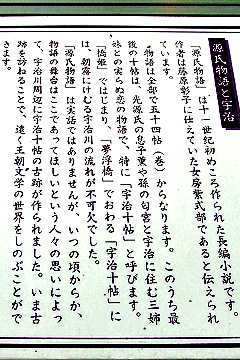 源氏物語と宇治
『源氏物語』は十一世紀初めころ作られた長編小説です。
作者は藤原彰子に仕えていた女房紫式部であると伝えられ
ています。
物語は全部で五十四帖（巻）からなります。このうち最
後の十帖は、光源氏の息子薫や孫の匂宮と宇治に住む三姉
妹との実らぬ恋の物語で、特に「宇治十帖」と呼びます。
「橋姫」ではじまり、「夢浮橋」でおわる「宇治十帖」に
は、朝霧にけむる宇治川の流れが不可欠でした。
『源氏物語』は実話ではありませんが、いつの頃からか、
物語の舞台はここであってほしいという人々の思いによっ
て、宇治川周辺に宇治十帖の古跡が作られました。いま古
跡を訪ねることで、遠く王朝文学の世界をしのぶことがで
きます。